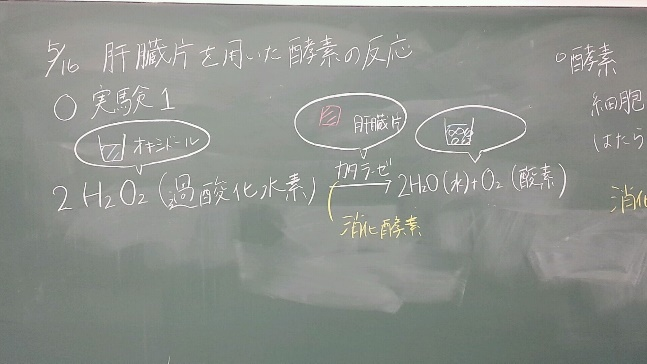 5/16 肝臓片を用いた酵素の反応
○ 実験1
オキシドール
肝臓片
2H₂O₂(過酸化水素)
カタラーゼ
→ 2H₂O(水)+O₂(酸素)
消化酵素
○酵素
細胞
はたら
消化